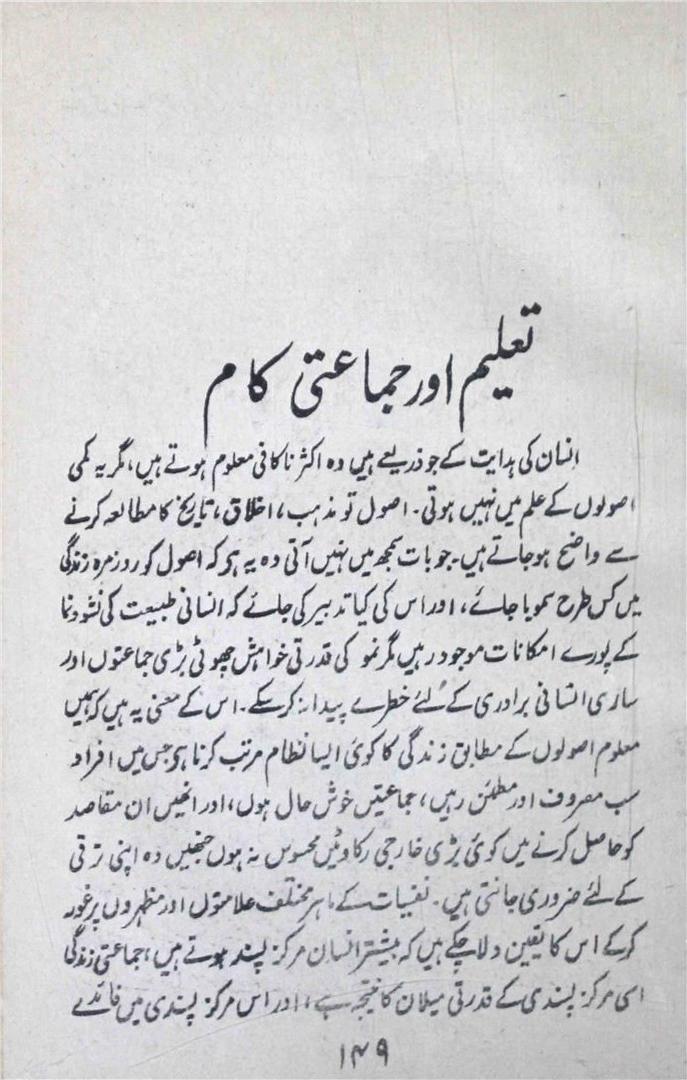 تعلیم اور جماعتی کام
انسان کی ہدایت کے جو ذریعے ہیں وہ اکثر ناکافی معلوم ہوتے ہیں، مگر یہ کمی
اصولوں کے علم میں نہیں ہوتی۔ اصول تو مذہب، اخلاق، تاریخ کا مطالعہ کرنے
سے واضح ہوجاتے ہیں۔ جو بات سمجھ میں نہیں آتی وہ یہ ہو کہ اصول کو روز مرہ زندگی
میں کس طرح سمویا جائے، اور اس کی کیا تدبیر کی جائے کہ انسانی طبیعت کی نشوونما
کے پورے امکانات موجود رہیں مگر نمو کی قدرتی خواہش چھوٹی بڑی جماعتوں اور
ساری انسانی برادری کے لئے خطرے پیدا نہ کرسکے۔ اس کے معنی یہ ہیں کہ ہمیں
معلوم اصولوں کے مطابق زندگی کا کوئی ایسا نظام مرتب کرنا ہو جس میں افراد
سب مصروف اور مطمئن رہیں، جماعتیں خوش حال ہوں، اور انھیں ان مقاصد
کو حاصل کرنے میں کوئی بڑی خارجی رکاوٹیں محسوس نہ ہوں جنھیں وہ اپنی ترقی
کے لئے ضروری جانتی ہیں۔ نفسیات کے ماہر مختلف علامتوں اور مظہروں پر غور
کرکے اس کا یقین دلا چکے ہیں کہ بیشتر انسان مرکز پسند ہوتے ہیں، جماعتی زندگی
اسی مرکز پسندی کے قدرتی میلان کا نتیجہ ہے، اور اس مرکز پسندی میں فائدے
۱۴۹